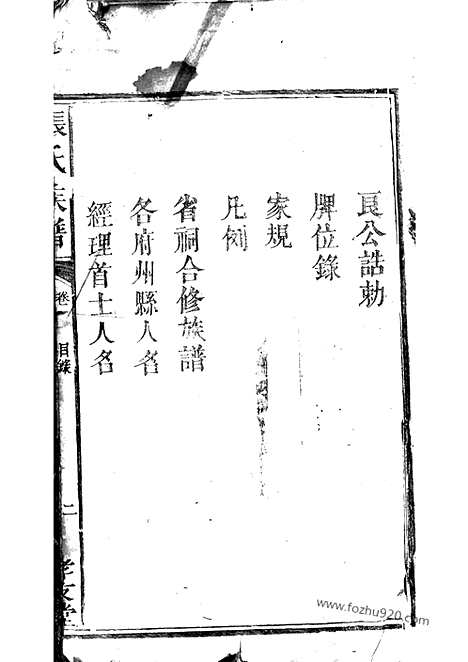 良公誥勅
牌位錄
家規
凡例
省祠合修族譜
各府州縣人名
經理首士人名
張氏族譜
卷一
目錄
二
孝友堂
www.fozhu920.com